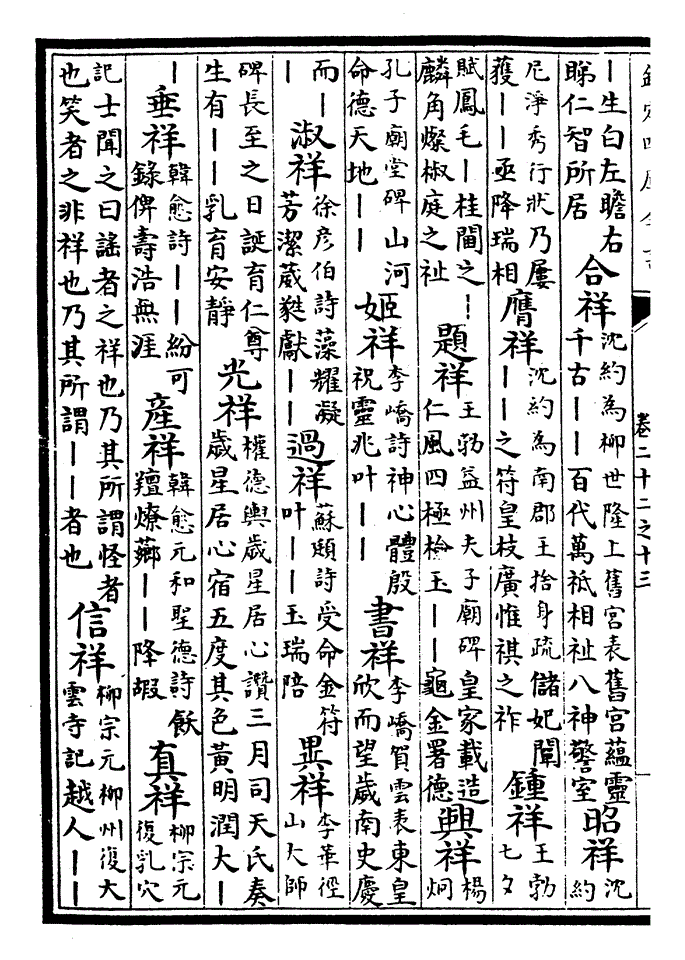 卷二十二之十三
｜生白左瞻右睇仁智所居合祥沈約為柳世隆上舊宮表舊宮蘊靈千古｜｜百代萬祗相祉八神警室昭祥沈約
尼淨秀行狀乃屢獲｜｜亟降瑞相膺祥沈約為南郡王捨身疏儲妃闡｜｜之符皇枝廣惟祺之祚鍾祥王勃七夕
賦鳳毛｜桂閫之｜麟角燦椒庭之祉題祥王勃益州夫子廟碑皇家載造仁風四極檢玉｜｜龜金署德興祥楊炯
孔子廟堂碑山河命德天地｜｜姬祥李嶠詩神心體殷祝靈兆叶｜｜書祥李嶠賀雲表東皇欣而望歲南史慶
而｜｜淑祥徐彥伯詩藻耀凝芳潔葳蕤獻｜｜過祥蘇頲詩受命金符叶｜｜玉瑞陪異祥李華徑山大師
碑長至之日誕育仁尊生有｜｜乳育安靜光祥權德輿歲星居心讚三月司天氏奏歲星居心宿五度其色黃明潤大｜
｜垂祥韓愈詩｜｜紛可錄俾壽浩無涯產祥韓愈元和聖德詩飫羶燎薌｜｜降嘏真祥柳宗元復乳穴
記士聞之曰謠者之祥也乃其所謂怪者也笑者之非祥也乃其所謂｜｜者也信祥柳宗元柳州復大雲寺記越人｜｜